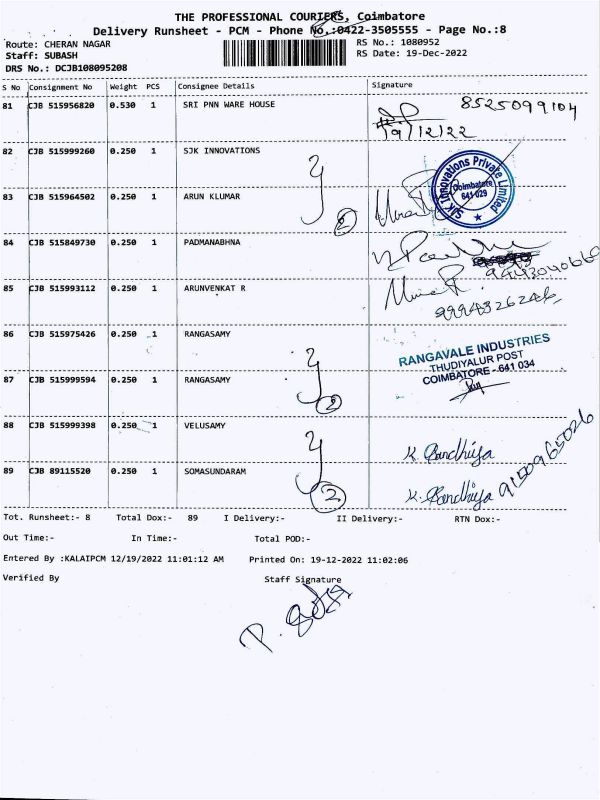 THE PROFESSIONAL COURIERS, Coimbatore
Delivery Runsheet - PCM - Phone No.:0422-3505555 - Page No.:8
Route: CHERAN NAGAR
RS No.: 1080952
Staff: SUBASH
RS Date: 19-Dec-2022
DRS No.: DCJB108095208
S No Consignment No Weight PCS Consignee Details Signature
81 CJB 515956820 0.530 1 SRI PNN WARE HOUSE 8525099104
19/12/22
82 CJB 515999260 0.250 1 SJK INNOVATIONS
SJK Innovations Private Limited
Coimbatore
641 029
83 CJB 515964502 0.250 1 ARUN KLUMAR
2
84 CJB 515849730 0.250 1 PADMANABHNA
9443040660
85 CJB 515993112 0.250 1 ARUNVENKAT R
9994326246
86 CJB 515975426 0.250 1 RANGASAMY
RANGAVALE INDUSTRIES
THUDIYALUR POST
COIMBATORE - 641 034
87 CJB 515999594 0.250 1 RANGASAMY
2
88 CJB 515999398 0.250 1 VELUSAMY
K. Sandhiya
89 CJB 89115520 0.250 1 SOMASUNDARAM
2
K. Sandhiya 9150965026
Tot. Runsheet:- 8 Total Dox:- 89 I Delivery:- II Delivery:- RTN Dox:-
Out Time:- In Time:- Total POD:-
Entered By :KALAIPCM 12/19/2022 11:01:12 AM Printed On: 19-12-2022 11:02:06
Verified By Staff Signature